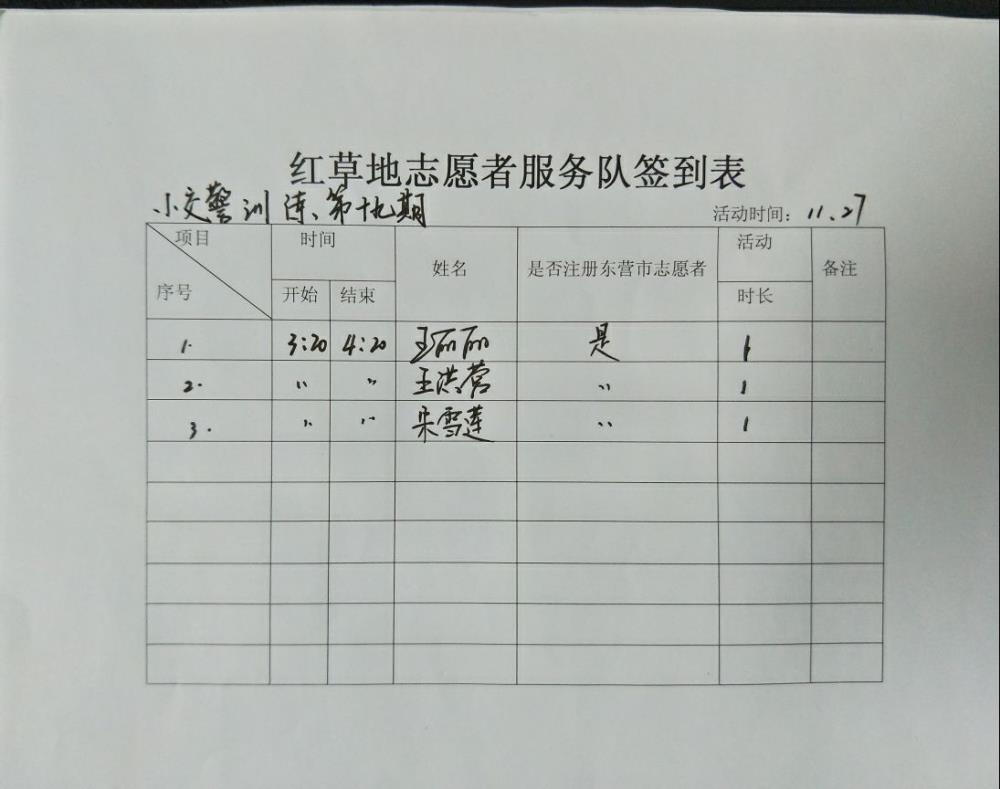 红草地志愿者服务队签到表
小交警训练、第十九期
活动时间：11.27
项目 时间 姓名 是否注册东营市志愿者 活动 备注
序号 开始 结束 时长
1. 3:20 4:20 王丽丽 是 1
2. 〃 〃 王洪营 〃 1
3. 〃 〃 宋雪莲 〃 1